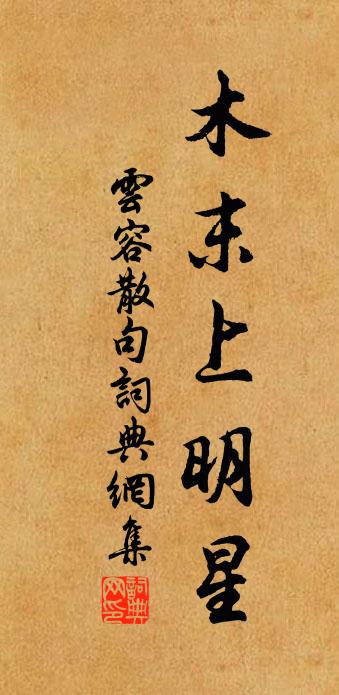 木末上明星
雲容散句詞典網集
詞典网印